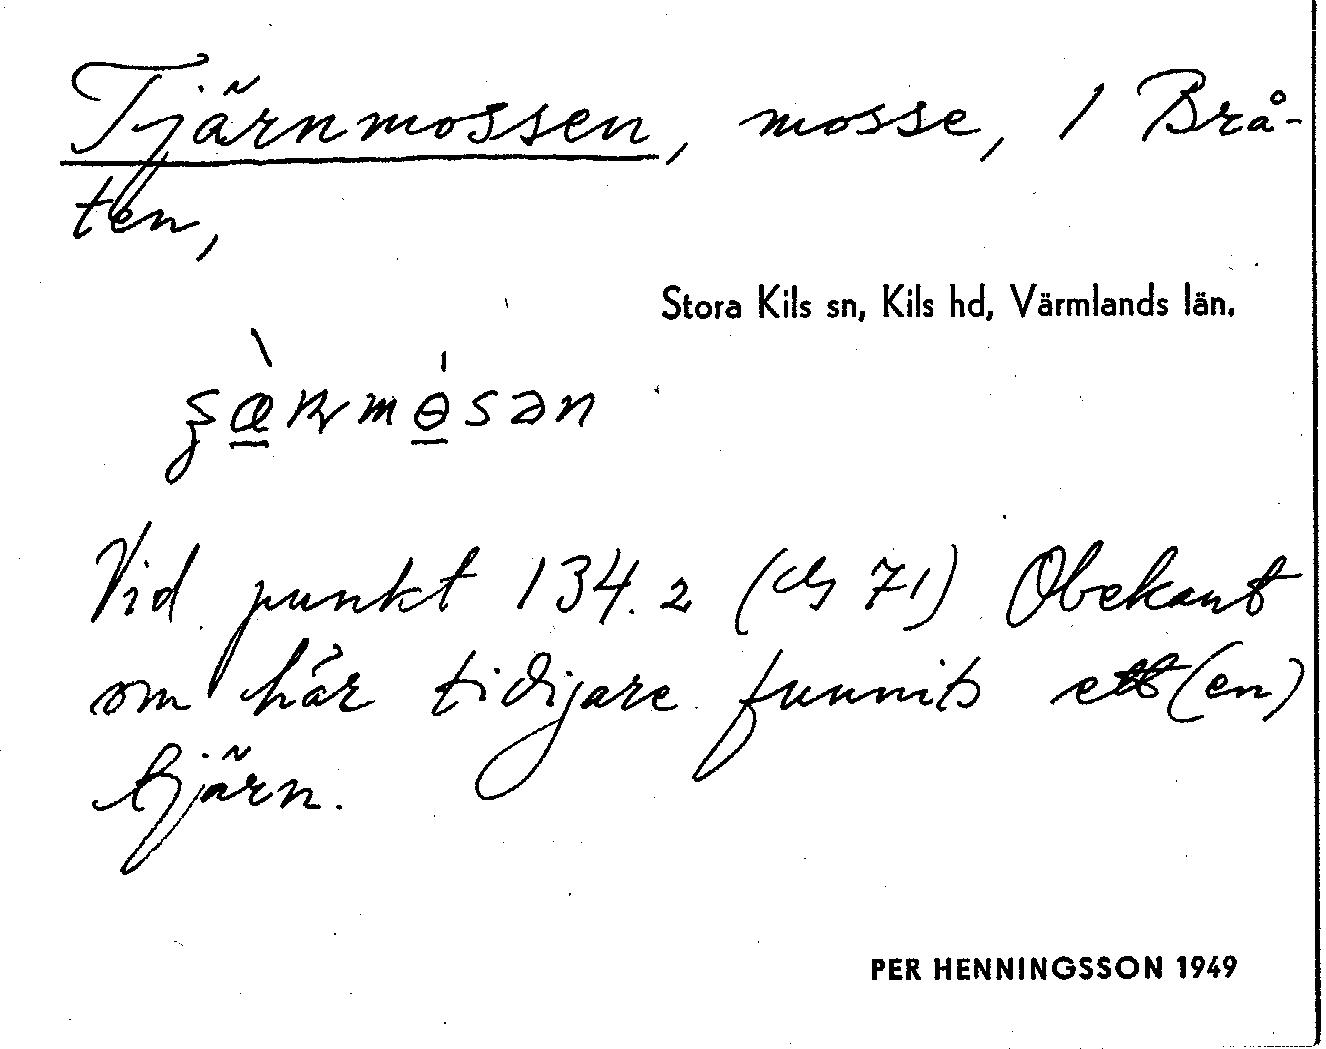 Tjärnmossen, mosse, 1 Brå-
ten,
Stora Kils sn, Kils hd, Värmlands län.
Vid punkt 134.2 (ch 71) Obekant
om här tidigare funnits ett (en)
tjärn.
PER HENNINGSSON 1949